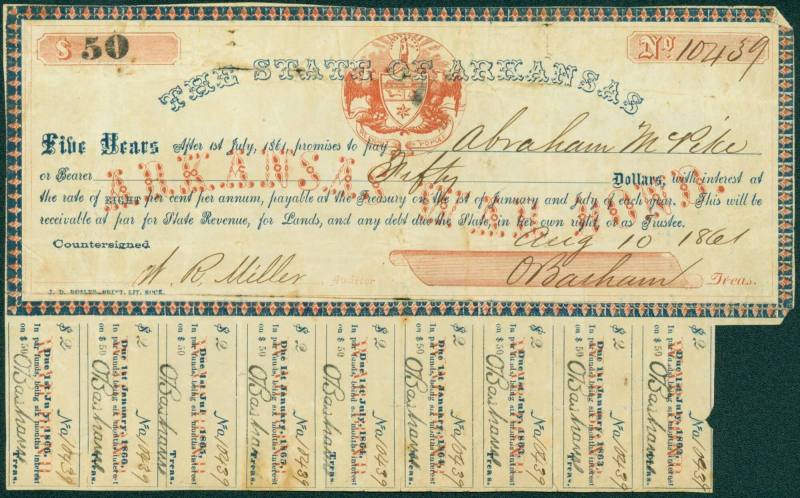 $ 50
No. 10439
THE STATE OF ARKANSAS
Five Years After 1st July, 1861, promises to pay Abraham McPike
or Bearer Fifty Dollars, with interest at
the rate of EIGHT per cent per annum, payable at the Treasury on the 1st of January and July of each year. This will be
receivable at par for State Revenue, for Lands, and any debt due the State, in her own right, or as Trustee.
ARKANSAS WAR BOND.
Countersigned
Aug 10 1861
W. R. Miller Auditor
O Basham Treas.
J. D. BUTLER—PRINT. LIT. ROCK.
$ 2 No 10439
Due 1st July, 1866,
In par funds, being six months interest
on $ 50 O Basham Treas.
$ 2 No 10439
Due 1st January, 1866,
In par funds, being six months interest
on $ 50 O Basham Treas.
$ 2 No 10439
Due 1st July, 1865,
In par funds, being six months interest
on $ 50 O Basham Treas.
$ 2 No 10439
Due 1st January, 1865,
In par funds, being six months interest
on $ 50 O Basham Treas.
$ 2 No 10439
Due 1st July, 1864,
In par funds, being six months interest
on $ 50 O Basham Treas.
$ 2 No 10439
Due 1st January, 1864,
In par funds, being six months interest
on $ 50 O Basham Treas.
$ 2 No 10439
Due 1st July, 1863,
In par funds, being six months interest
on $ 50 O Basham Treas.
$ 2 No 10439
Due 1st January, 1863,
In par funds, being six months interest
on $ 50 O Basham Treas.
$ 2 No 10439
In par funds, being six months interest
on $ 50 O Basham Treas.